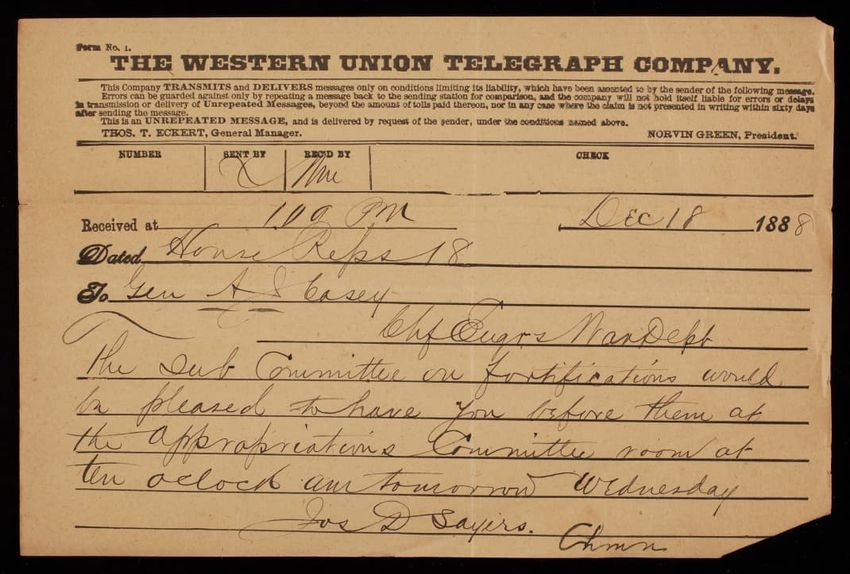 Form No. 1.
THE WESTERN UNION TELEGRAPH COMPANY.
This Company TRANSMITS and DELIVERS messages only on conditions limiting its liability, which have been assented to by the sender of the following message.
Errors can be guarded against only by repeating a message back to the sending station for comparison, and the company will not hold itself liable for errors or delays
in transmission or delivery of Unrepeated Messages, beyond the amount of tolls paid thereon, nor in any case where the claim is not presented in writing within sixty days
after sending the message.
This is an UNREPEATED MESSAGE, and is delivered by request of the sender, under the conditions named above.
THOS. T. ECKERT, General Manager. NORVIN GREEN, President.
NUMBER SENT BY REC'D BY CHECK
X
Received at 1.09 PM Dec 18 1888
Dated House Reps 18
To Gen A S Casey
Chf Engrs War Dept
The Sub Committee on fortifications would
be pleased to have you before them at
the appropriations Committee room at
ten oclock am tomorrow Wednesday
Jos D Sayers.
Chmn